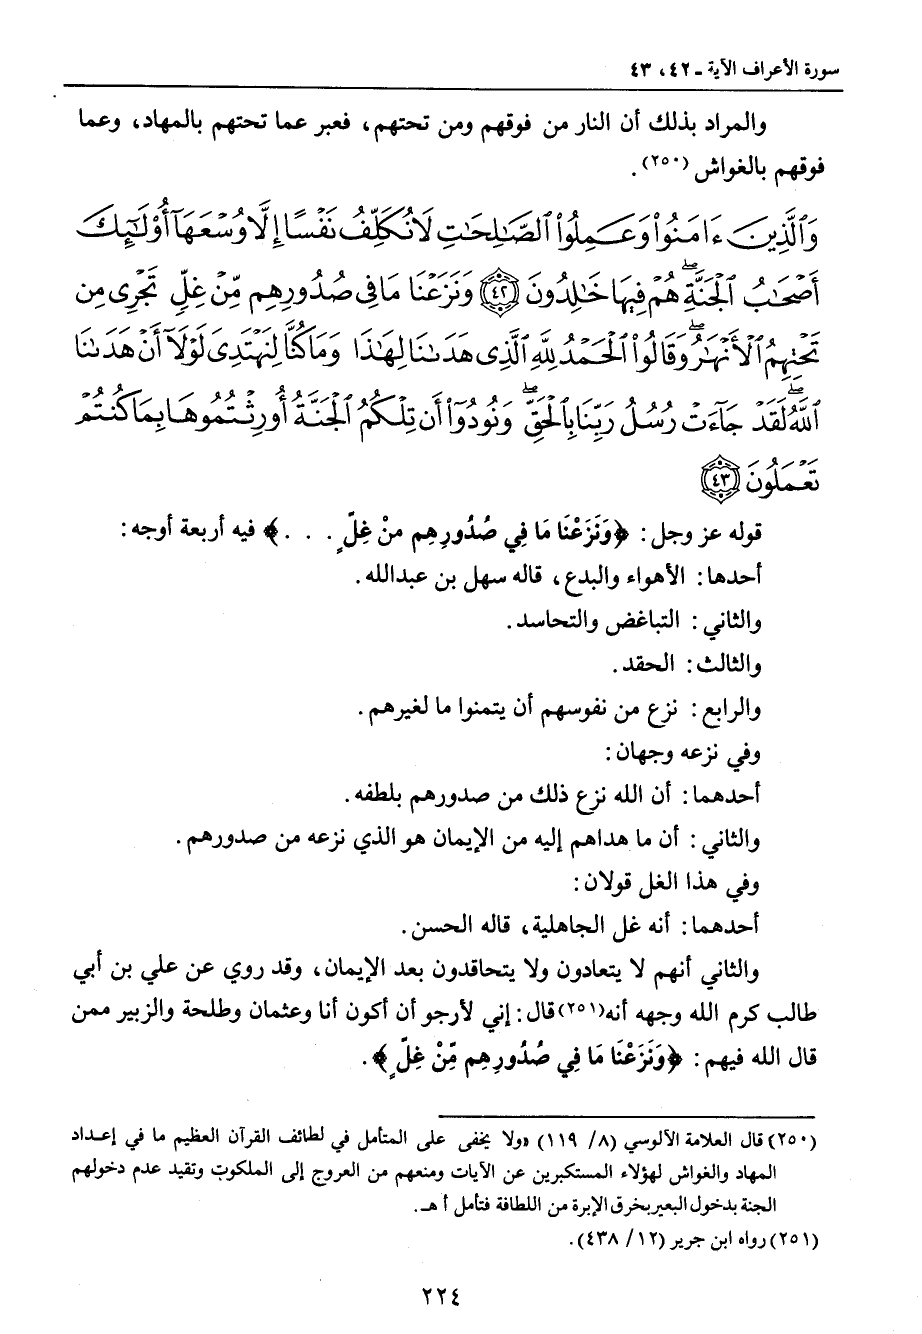 سورة الأعراف الآية - ٤٢، ٤٣
والمراد بذلك أن النار من فوقهم ومن تحتهم، فعبر عما تحتهم بالمهاد، وعما
فوقهم بالغواش (٢٥٠).
وَالَّذِينَ ءَامَنُوا۟ وَعَمِلُوا۟ ٱلصَّـٰلِحَـٰتِ لَا نُكَلِّفُ نَفْسًا إِلَّا وُسْعَهَآ أُو۟لَـٰٓئِكَ
أَصْحَـٰبُ ٱلْجَنَّةِ ۖ هُمْ فِيهَا خَـٰلِدُونَ ﴿٤٢﴾ وَنَزَعْنَا مَا فِى صُدُورِهِم مِّنْ غِلٍّ تَجْرِى مِن
تَحْتِهِمُ ٱلْأَنْهَـٰرُ ۖ وَقَالُوا۟ ٱلْحَمْدُ لِلَّهِ ٱلَّذِى هَدَىٰنَا لِهَـٰذَا وَمَا كُنَّا لِنَهْتَدِىَ لَوْلَآ أَنْ هَدَىٰنَا
ٱللَّهُ ۖ لَقَدْ جَآءَتْ رُسُلُ رَبِّنَا بِٱلْحَقِّ ۖ وَنُودُوٓا۟ أَن تِلْكُمُ ٱلْجَنَّةُ أُورِثْتُمُوهَا بِمَا كُنتُمْ
تَعْمَلُونَ ﴿٤٣﴾
قوله عز وجل: ﴿وَنَزَعْنَا مَا فِي صُدُورِهِم مِنْ غِلٍّ . . .﴾ فيه أربعة أوجه:
أحدها: الأهواء والبدع، قاله سهل بن عبدالله.
والثاني: التباغض والتحاسد.
والثالث: الحقد.
والرابع: نزع من نفوسهم أن يتمنوا ما لغيرهم.
وفي نزعه وجهان:
أحدهما: أن الله نزع ذلك من صدورهم بلطفه.
والثاني: أن ما هداهم إليه من الإيمان هو الذي نزعه من صدورهم.
وفي هذا الغل قولان:
أحدهما: أنه غل الجاهلية، قاله الحسن.
والثاني أنهم لا يتعادون ولا يتحاقدون بعد الإيمان، وقد روي عن علي بن أبي
طالب كرم الله وجهه أنه(٢٥١)قال: إني لأرجو أن أكون أنا وعثمان وطلحة والزبير ممن
قال الله فيهم: ﴿وَنَزَعْنَا مَا فِي صُدُورِهِم مِّنْ غِلٍّ﴾.
(٢٥٠) قال العلامة الآلوسي (٨/ ١١٩) «ولا يخفى على المتأمل في لطائف القرآن العظيم ما في إعداد
المهاد والغواش لهؤلاء المستكبرين عن الآيات ومنعهم من العروج إلى الملكوت وتقيد عدم دخولهم
الجنة بدخول البعير بخرق الإبرة من اللطافة فتأمل أ هـ.
(٢٥١) رواه ابن جرير (١٢/ ٤٣٨).
٢٢٤